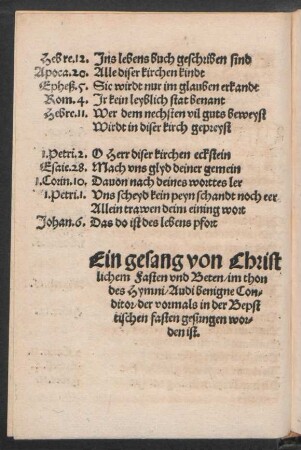 Hebre.12. Ins lebens buch geschriben sind
Apoca.20. Alle diser kirchen kindt
Epheß.5. Sie wirdt nur im glauben erkandt
Rom.4. Ir kein leyblich stat benant
Hebre.11. Wer dem nechsten vil guts beweyst
Wirdt in diser kirch gepreyst
1.Petri.2. O Herr diser kirchen eckstein
Esaie.28. Mach vns glyd deiner gemein
1.Corin.10. Dauon nach deines worttes ler
1.Petri.1. Vns scheyd kein peyn schandt noch eer
Allein trawen deim eining wort
Johan.6. Das do ist des lebens pfort
Ein gesang von Christ
lichem Fasten vnd Beten/im thon
des Hymni/Audi benigne Con-
ditor/der vormals in der Bepst
tischen fasten gesungen wor-
den ist.